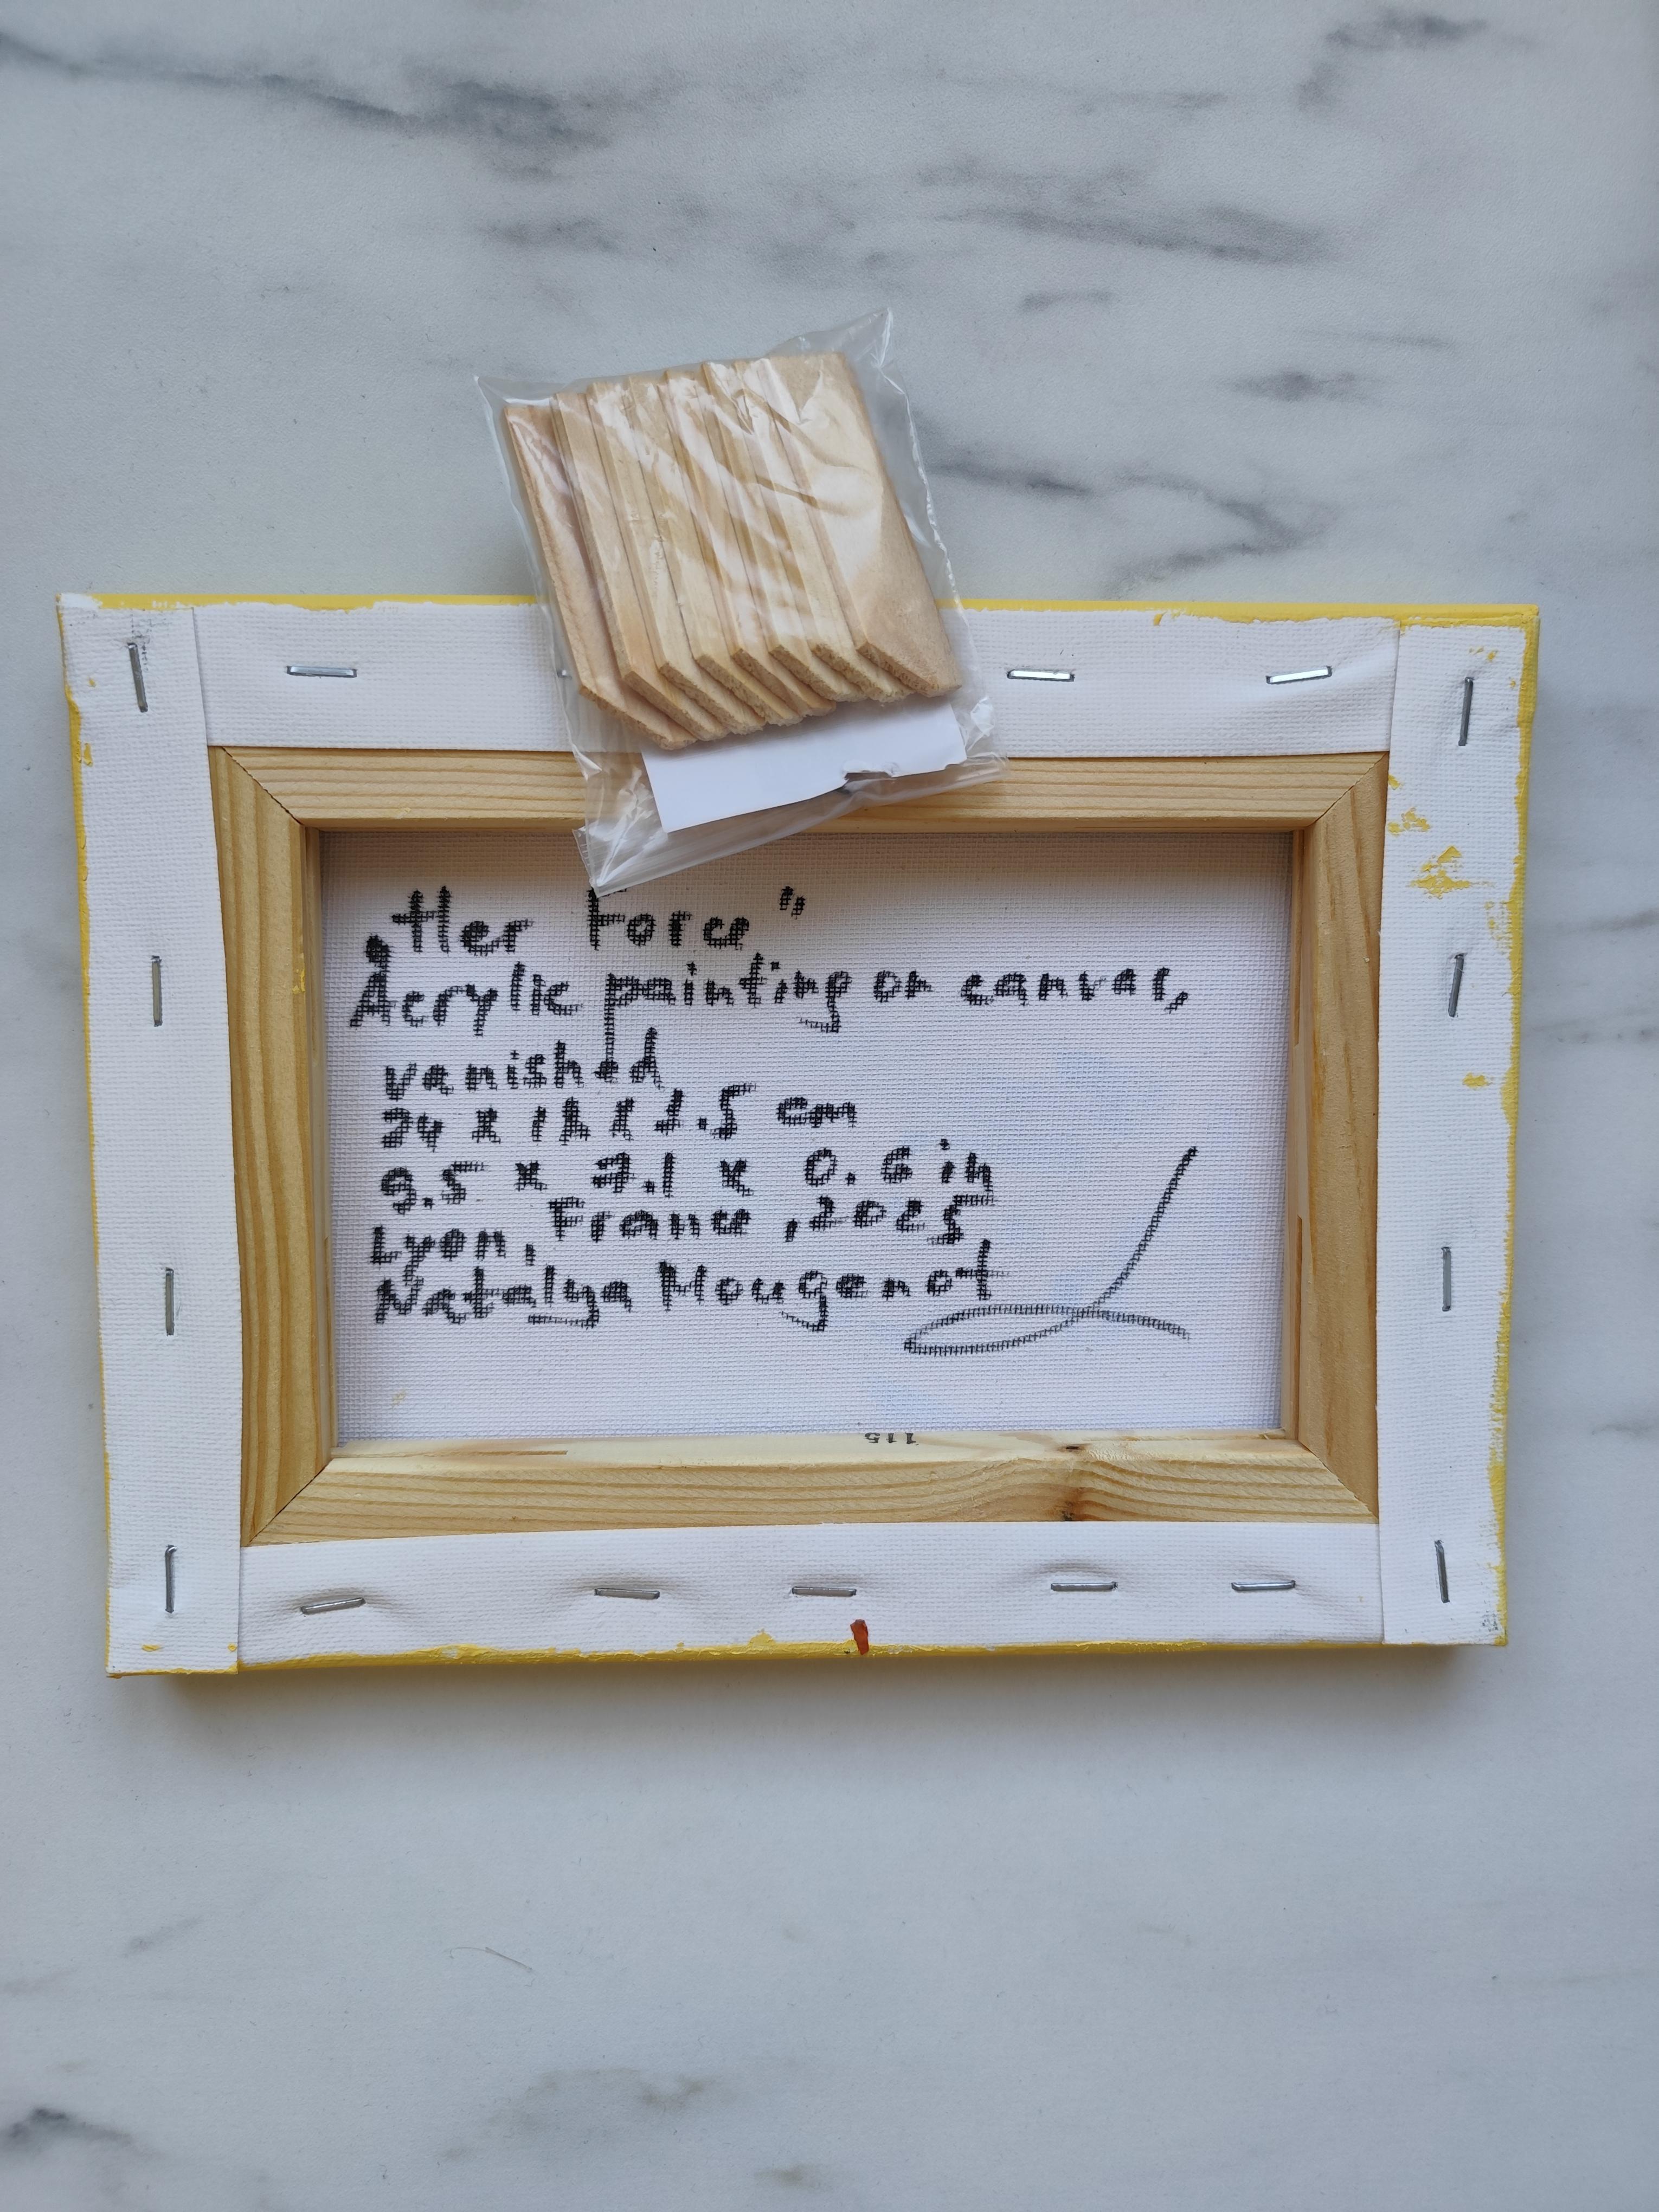 „Her Force"
Acrylic painting on canvas,
vanished
24 x 18 x 1.5 cm
9.5 x 7.1 x 0.6 in
Lyon, France, 2025
Natalya Mougenot
115